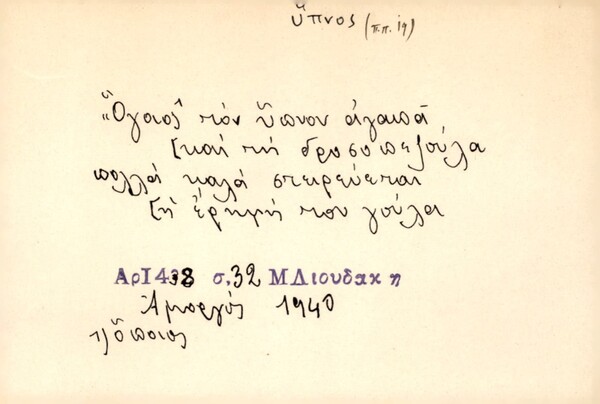 ὕπνος (π.π. 19)
"Ὅγοιος¹ τὸν ὕπνον ἀγαπᾶ
[καὶ τὴ δροσοπεζούλα
πολλὰ καλὰ στειρεύεται
[ἡ ἔρημή του γούλα
Αρ1438 σ,32 ΜΛιουδακη
Ἀμοργός 1940
1) ὅποιος